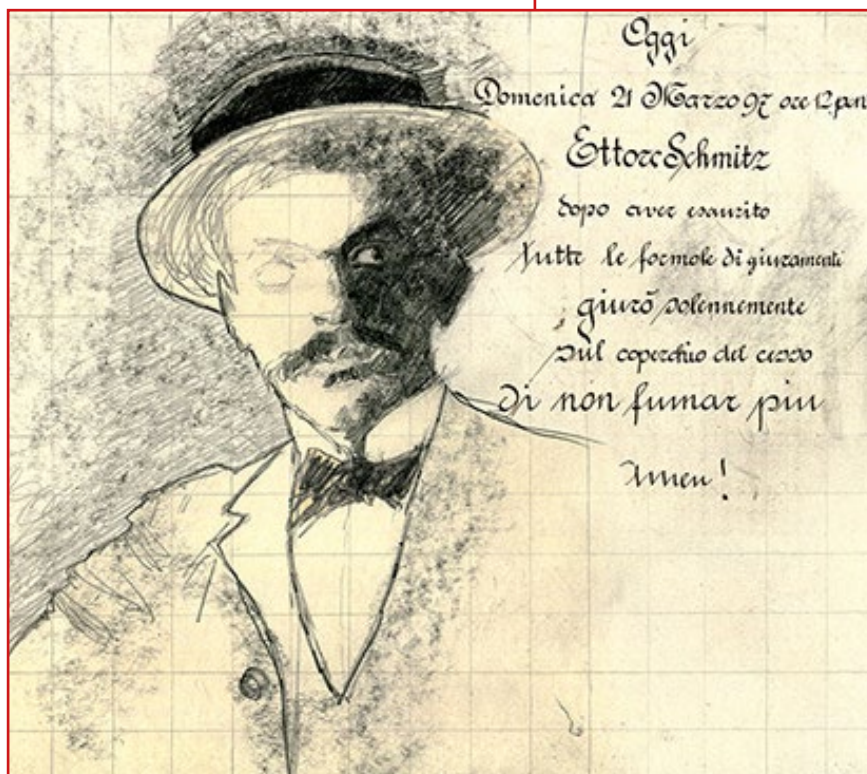 Oggi
Domenica 21 Marzo 97 ore 12 pm
Ettore Schmitz
dopo aver esaurito
tutte le formole di giuramenti
giurò solennemente
sul coperchio del cesso
di non fumar piu
Amen!